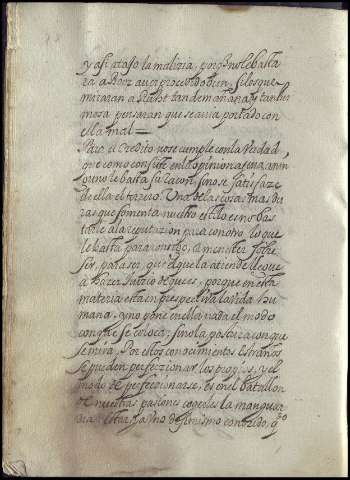 y asi atajo la malizia, que no le basta
ra a Booz auer procedido bien, si los que
miraran a Ruht tan de mañana, y tan her
mosa pensaran que se auia portado con
ella mal =
Para el Credito no se cumple con la verdad
que como consiste en la opinion agena, a nin
guno le basta su raçon, sino se satisfaze
de ella el tercero. Una de las cosas mas du
ras que fomenta nuestro estilo es no bas
tarle a la reputazion para con otro, lo que
le basta para consigo, a menester sobre
ser, parezer, que el que la atiende llegue
a hazer Juizio de que es, porque en esta
materia esta en prespectiva la vida hu
mana, y no pone en ella nada el modo
con que se coloca, sino la postura con que
se mira. Por estos conocimientos estraños
se pueden perfeczionar los propios, y el
modo de perfeczionarse, es en el batallon
de nuestras pasiones cogerles la manguar
dia estar ya uno de si mismo conozido, q̃